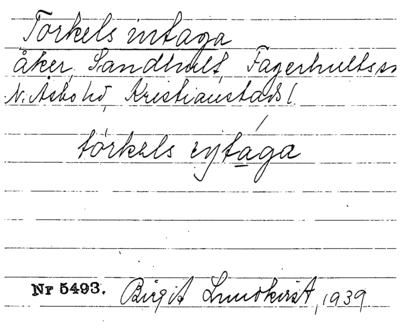 Torkels intaga
åker, Sandhult, Fagerhults sn
N. Åsbo hd, Kristianstads l.
tórkels ıŋtága
Nr 5493. Birgit Lundkvist, 1939